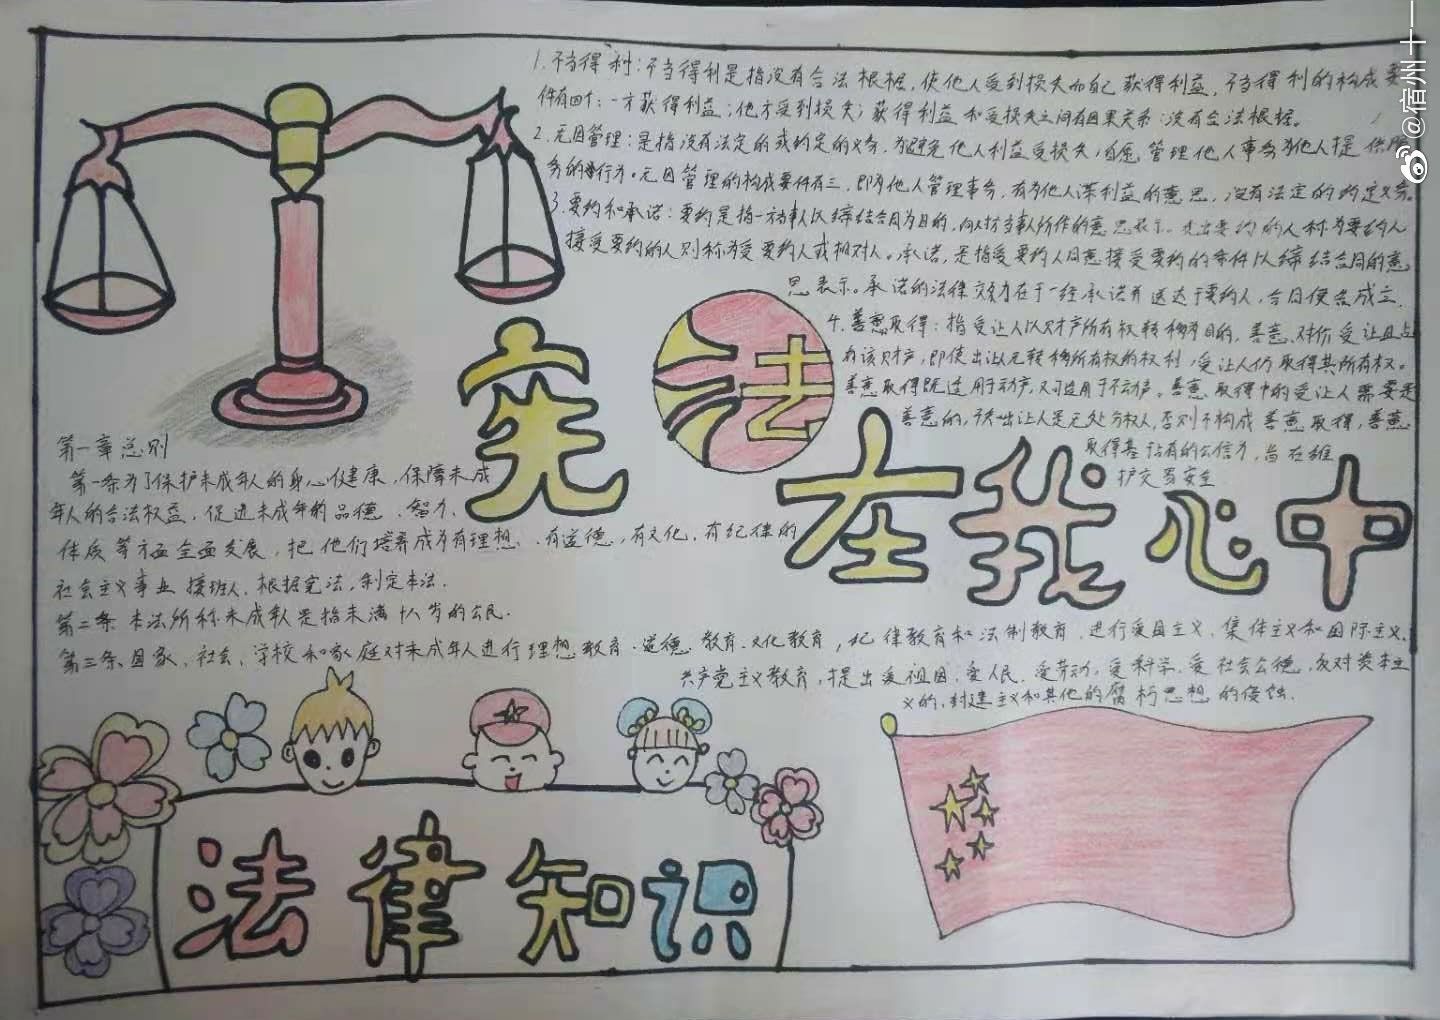 @宿州十一
1.不当得利：不当得利是指没有合法根据，使他人受到损失而自己获得利益，不当得利的构成要
件有四个：一方获得利益；他方受到损失；获得利益和受损失之间有因果关系；没有合法根据。
2.无因管理：是指没有法定的或约定的义务，为避免他人利益受损失，自愿管理他人事务为他人提供服
务的行为。无因管理的构成要件有三，即为他人管理事务，有为他人谋利益的意思，没有法定的约定义务。
3.要约和承诺：要约是指一方当事人以缔结合同为目的，向对方当事人所作的意思表示。发出要约的人称为要约人
接受要约的人则称为受要约人或相对人。承诺，是指受要约人同意接受要约的条件以缔结合同的意
思表示。承诺的法律效力在于一经承诺并送达于要约人，合同便告成立.
4.善意取得：指受让人以财产所有权转移为目的，善意、对价受让且占
有该财产，即使出让人无转移所有权的权利，受让人仍取得其所有权。
善意取得既适用于动产，又可适用于不动产。善意取得中的受让人需要是
善意的，出让人是无处分权人，否则不构成善意取得，善意
取得基于占有的公信力，旨在维
护交易安全
宪法在我心中
第一章总则
第一条为了保护未成年人的身心健康，保障未成
年人的合法权益，促进未成年的品德、智力、
体质等方面全面发展，把他们培养成为有理想、有道德，有文化，有纪律的
社会主义事业接班人，根据宪法，制定本法.
第二条 本法所称未成年人是指未满十八岁的公民.
第三条、国家、社会、学校和家庭对未成年人进行理想教育、道德教育、文化教育，纪律教育和法制教育，进行爱国主义、集体主义和国际主义、
共产党主义教育，提出爱祖国，爱人民，爱劳动，爱科学，爱社会公德，反对资本主
义的，封建主义和其他的腐朽思想的侵蚀.
法律知识